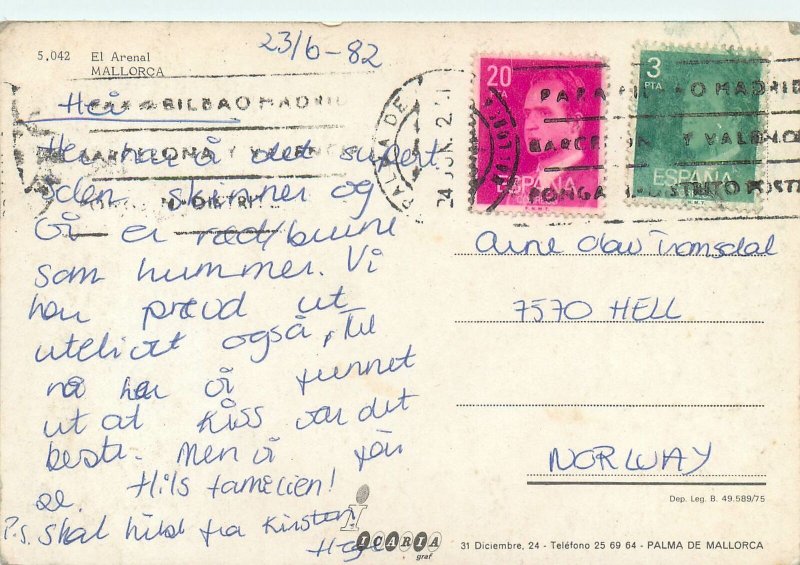 5,042 El Arenal
MALLORCA
23/6-82
Hei
Her har vi det supert
solen skinner og
vi er rød/brune
som hummer. Vi
har prøvd ut
utelivet også, Til
nå har vi funnet
ut at Kiss var det
beste. Men vi får
se. Hils familien!
P.S. Skal hilse fra Kirsten
20 PTA
ESPAÑA
3 PTA
ESPAÑA
PALMA DE
24 JUN
PARA BILBAO MADRID
BARCELONA Y VALENCIA
PONGA DISTRITO POSTAL
Arne Olav Tromsdal
7570 HELL
NORWAY
Dep. Leg. B. 49.589/75
ICARIA
graf
31 Diciembre, 24 - Teléfono 25 69 64 - PALMA DE MALLORCA